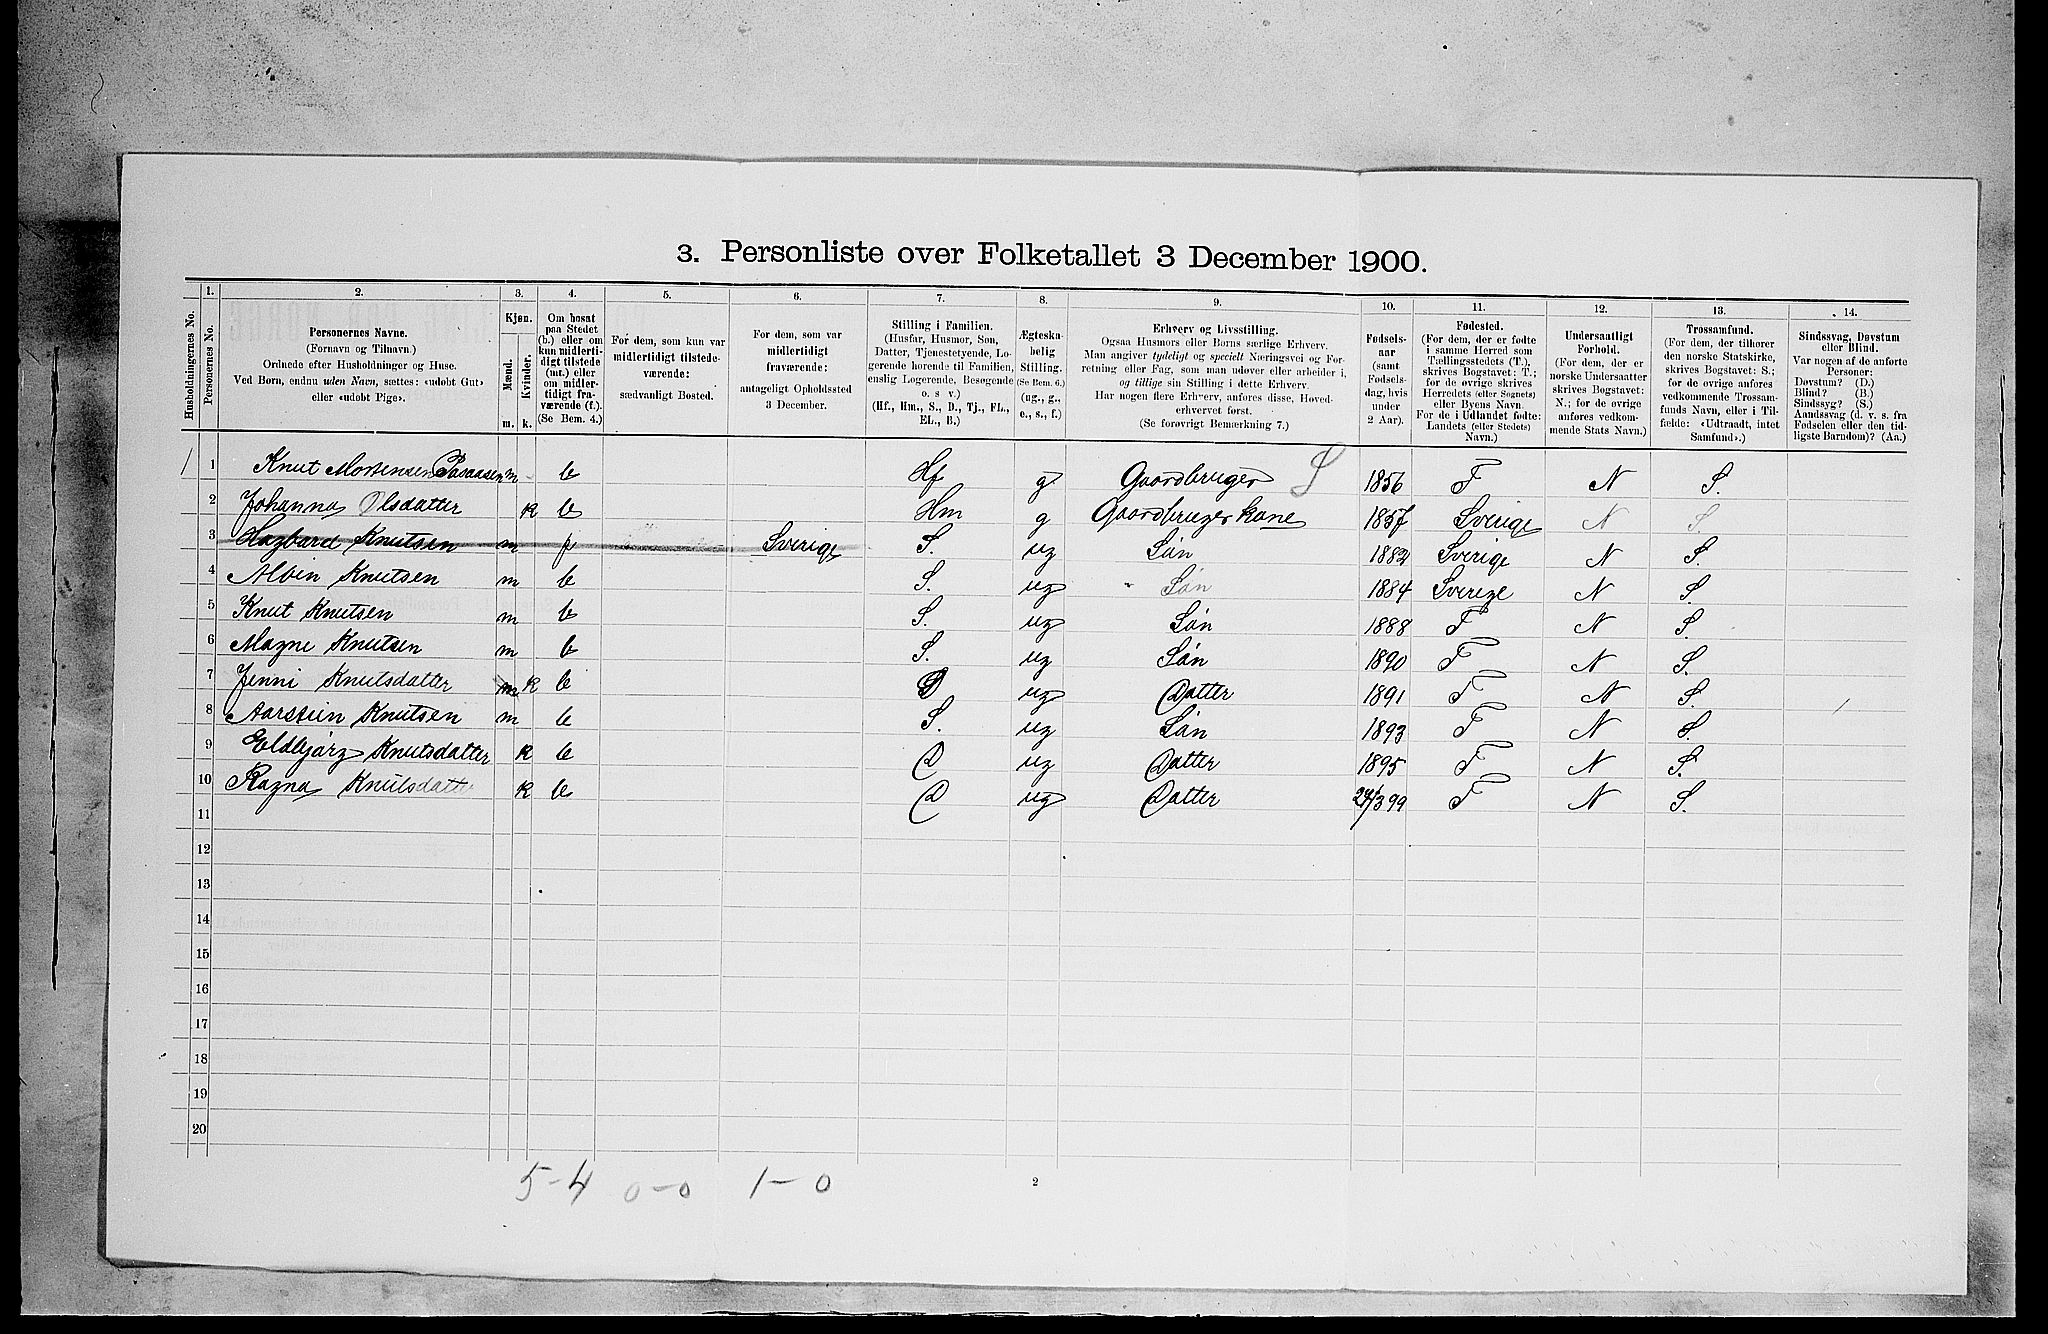 3. Personliste over Folketallet 3 December 1900.
Husholdningernes No.
1.
Personernes No.
2.
Personernes Navne.
(Fornavn og Tilnavn.)
Ordnede efter Husholdninger og Huse.
Ved Børn, endnu uden Navn, sættes: «udøbt Gut»
eller «udøbt Pige».
3.
Kjøn.
Mænd.
Kvinder.
m. k.
4.
Om bosat
paa Stedet
(b.) eller om
kun midlerti-
digt tilstede
(mt.) eller
om midler-
tidigt fra-
værende (f.).
(Se Bem. 4.)
5.
For dem, som kun var
midlertidigt tilstede-
værende:
sædvanligt Bosted.
6.
For dem, som var
midlertidigt
fraværende:
antageligt Opholdssted
3 December.
7.
Stilling i Familien.
(Husfar, Husmor, Søn,
Datter, Tjenestetyende, Lo-
gerende hørende til Familien,
enslig Logerende, Besøgende
o. s. v.)
(Hf., Hm., S., D., Tj., FL.,
EL., B.)
8.
Ægteska-
belig
Stilling.
(Se Bem. 6.)
(ug., g.,
e., s., f.)
9.
Erhverv og Livsstilling.
Ogsaa Husmors eller Børns særlige Erhverv.
Man angiver tydeligt og specielt Næringsvei og For-
retning eller Fag, som man udøver eller arbeider i,
og tillige sin Stilling i dette Erhverv.
Har nogen flere Erhverv, anføres disse, Hoved-
erhvervet først.
(Se forøvrigt Bemærkning 7.)
10.
Fødsels-
aar
(samt
Fødsels-
dag, hvis
under
2 Aar).
11.
Fødested.
(For dem, der er fødte
i samme Herred som
Tællingsstedets (T.),
skrives Bogstavet: T.;
for de øvrige skrives
Herredets (eller Sognets)
eller Byens Navn.
For de i Udlandet fødte:
Landets (eller Stedets)
Navn.)
12.
Undersaatligt
Forhold.
(For dem, der er
norske Undersaatter
skrives Bogstavet:
N.; for de øvrige
anføres vedkom-
mende Stats Navn.)
13.
Trossamfund.
(For dem, der tilhører
den norske Statskirke,
skrives Bogstavet: S.;
for de øvrige anføres
vedkommende Trossam-
funds Navn, eller i Til-
fælde: «Udtraadt, intet
Samfund».)
14.
Sindssvag, Døvstum
eller Blind.
Var nogen af de anførte
Personer:
Døvstum? (D.)
Blind? (B.)
Sindssyg? (S.)
Aandssvag (d. v. s. fra
Fødselen eller den tid-
ligste Barndom)? (Aa.)
1 1 Knut Mortensen m b Hf g Gaardbruger S 1856 T N S.
2 Johanna Olsdatter k b Hm g Gaardbruger kone 1857 Sverige N S
3 Hagbard Knutsen m f Sverige S. ug Søn 1882 Sverige N S.
4 Albin Knutsen m b S. ug Søn 1884 Sverige N S.
5 Knut Knutsen m b S. ug Søn 1888 T N S.
6 Magne Knutsen m b S. ug Søn 1890 T N S.
7 Jenni Knutsdatter m k b D ug Datter 1891 T N S.
8 Aarstein Knutsen m b S. ug Søn 1893 T N S.
9 Eldbjørg Knutsdatter k b D ug Datter 1895 T N S.
10 Ragna Knutsdatter k b D ug Datter 24/3 99 T N S.
11
12
13
14
15
16
17
18
19
20
5-4 0-0 1-0
2